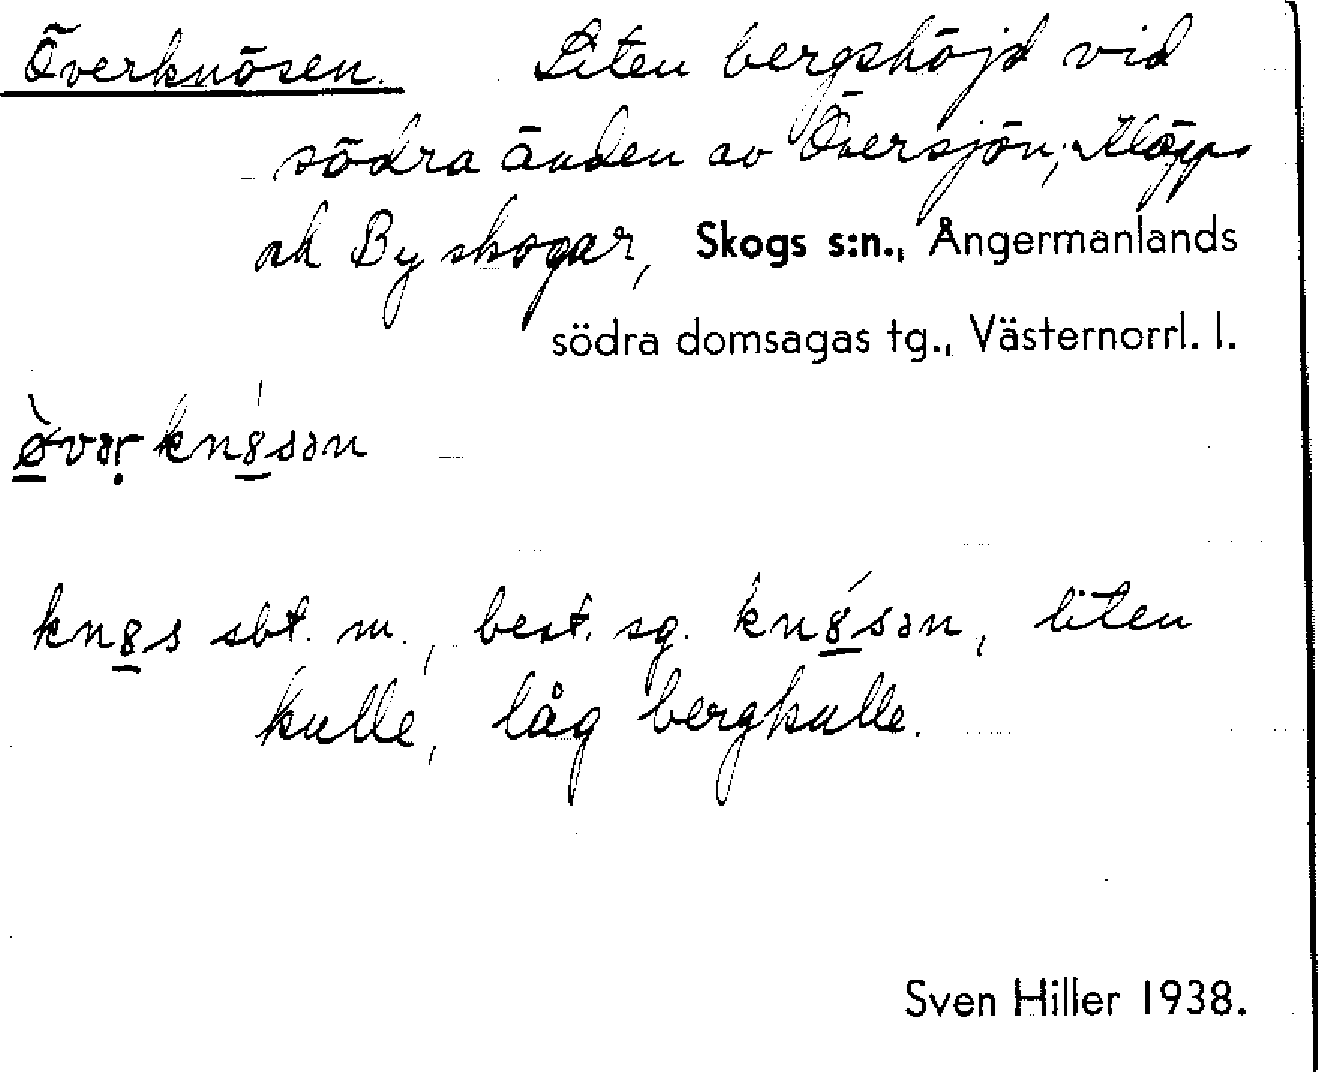 Överknösen. Liten bergshöjd vid
södra änden av Översjön,
och By skogar, Skogs s:n., Ångermanlands
södra domsagas tg., Västernorrl. l.
ø̀vəṛknósən
knȣs sbt. m., best. sg. knȣ́sən, liten
kulle, låg bergkulle.
Sven Hiller 1938.